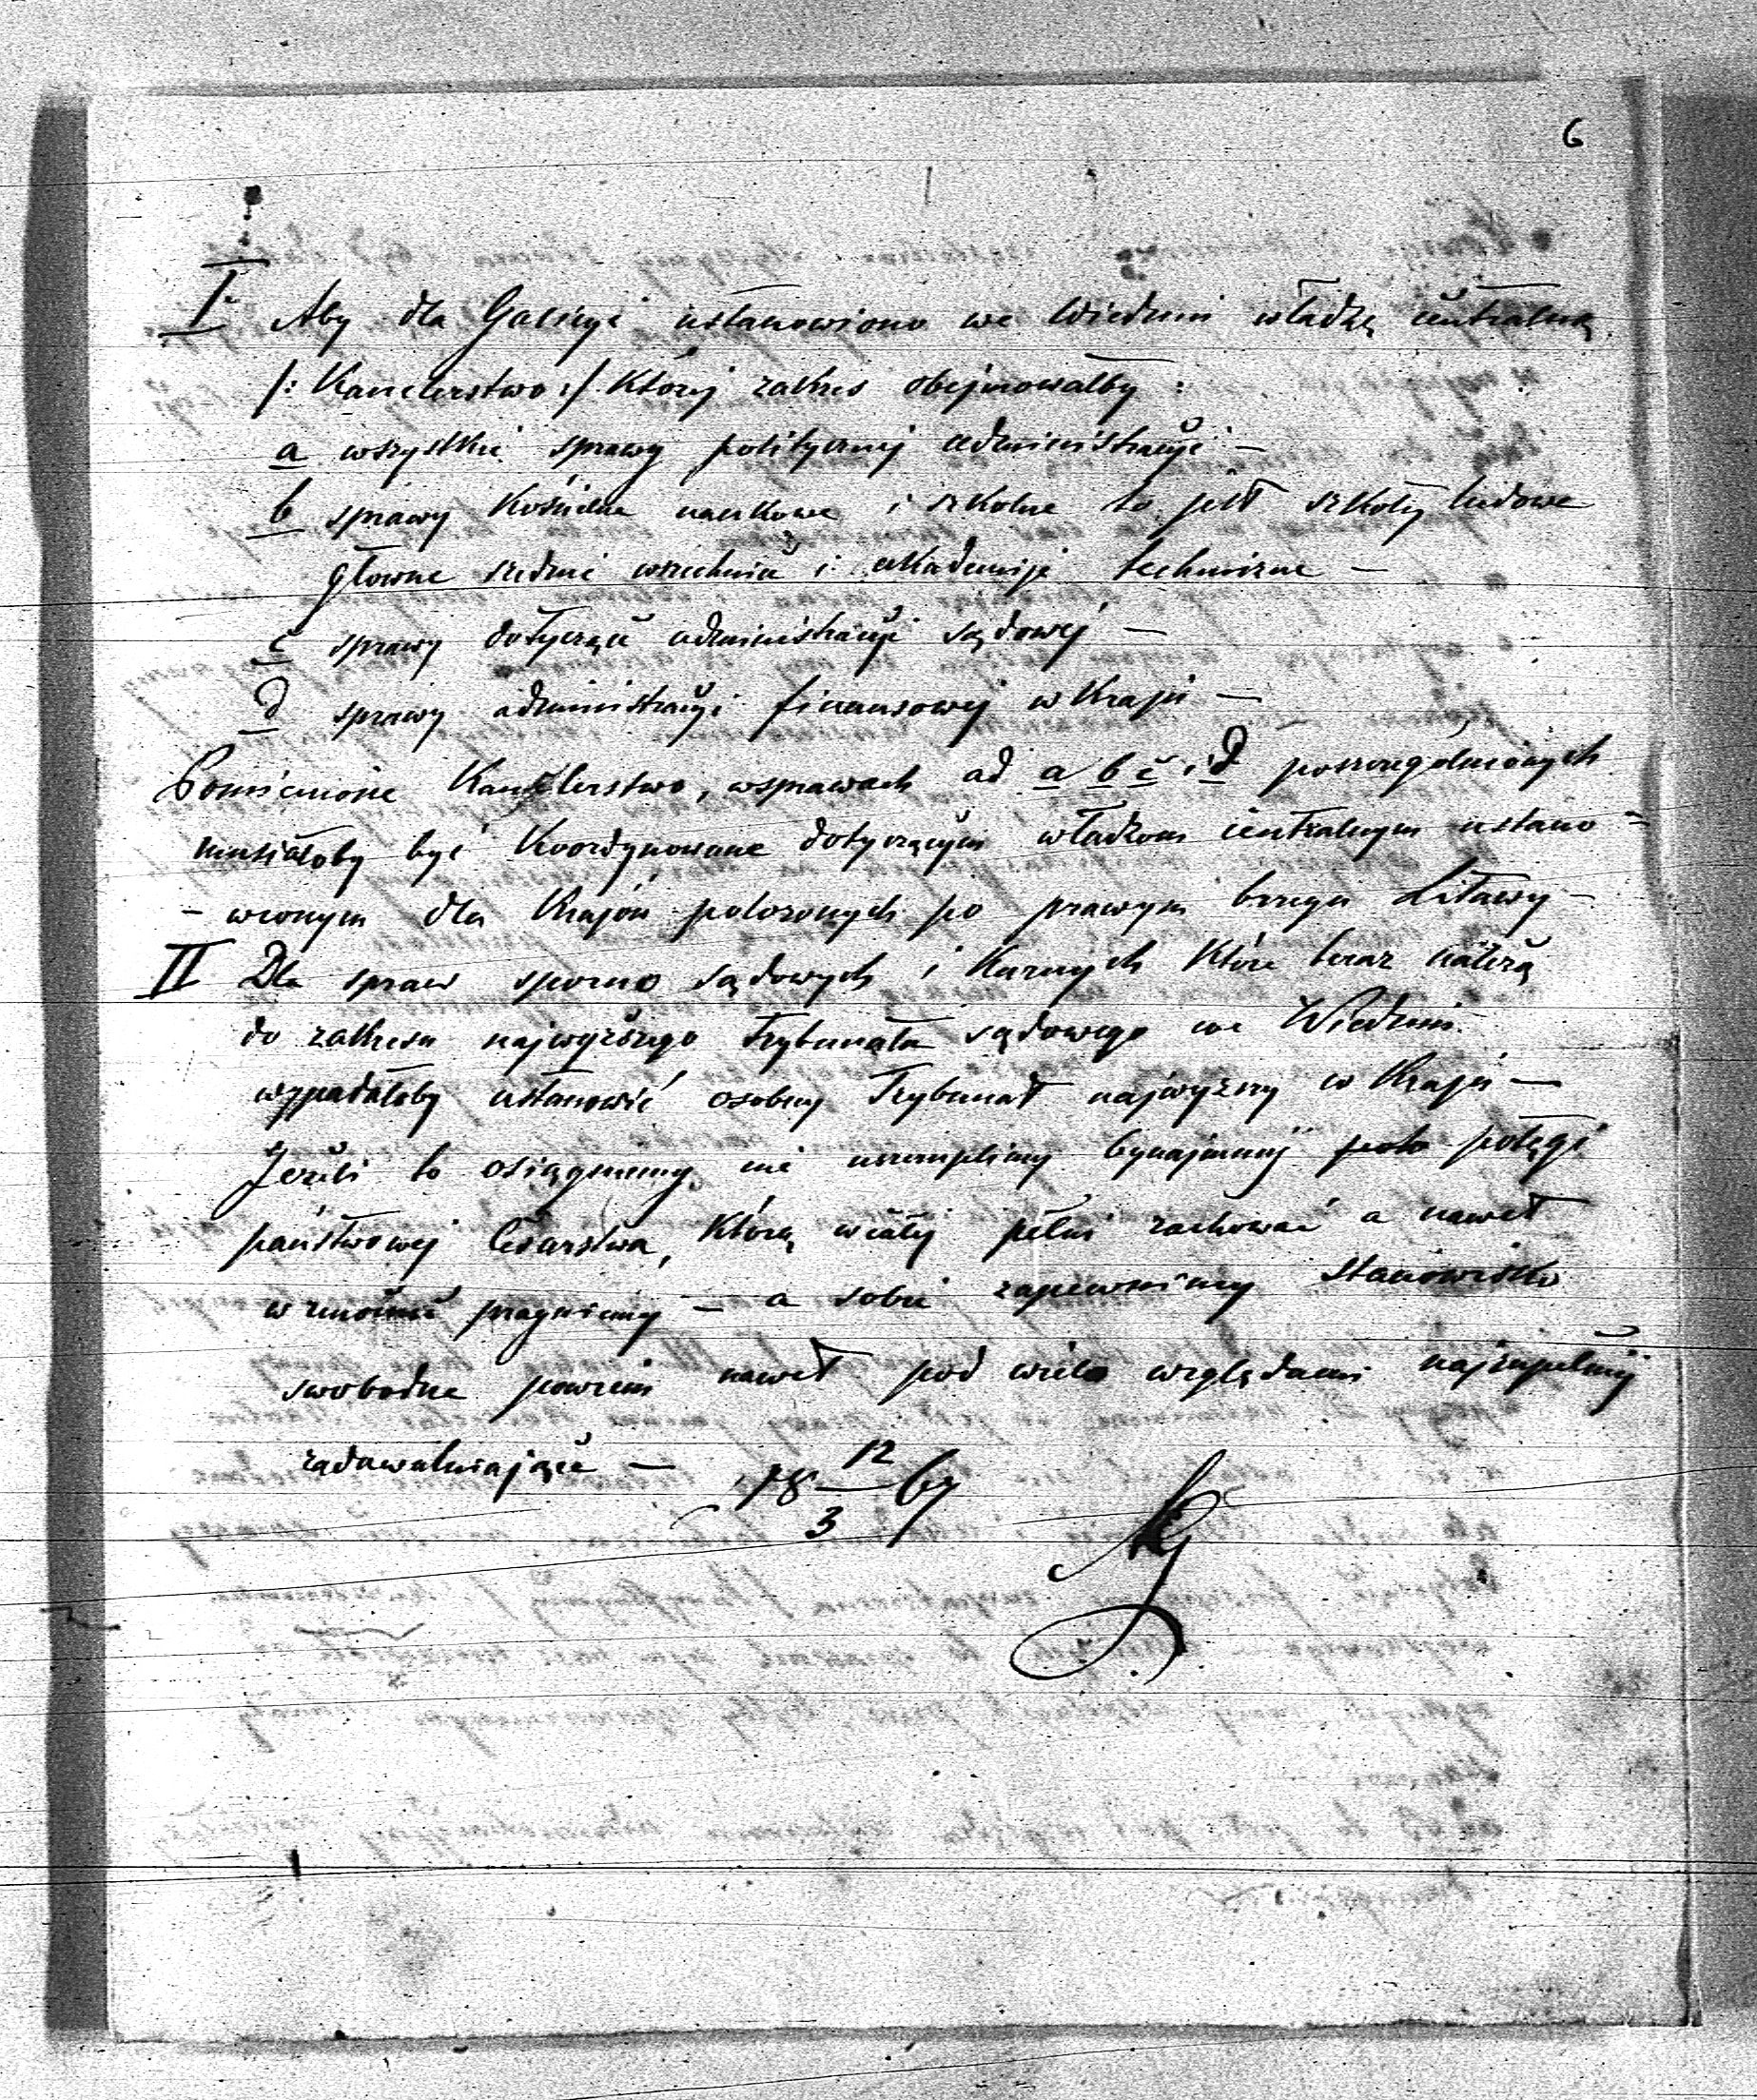 6
I Aby dla Galicyi ustanowiono we Wiedniu władzę centralną
/: Kanclerstwo :/ której zakres obejmowałby :
a wszystkie sprawy politycznej administracyi —
b sprawy kościelne naukowe i szkolne to jest szkoły ludowe
główne srednie wszechnice i akademije techniczne —
c sprawy dotyczące administracyi sądowej —
d sprawy administracyi finansowej w kraju —
Pomienione Kanclerstwo, w sprawach ad a b c i d poszczególnionych
musiałoby być koordynowane dotyczącym władzom centralnym ustano =
- wionym dla krajów położonych po prawym brzegu Litawy —
II Dla spraw sporno sądowych i karnych które teraz należą
do zakresu najwyższego Trybunału sądowego we Wiedniu
wypadałoby ustanowić osobny Trybunał najwyższy w kraju —
Jeżeli to osiągniemy, nie uszczuplimy bynajmniej potęgi
państwowej Cesarstwa, którą w całej pełni zachować a nawet
wzmożnić pragniemy — a sobie zapewnimy stanowisko
swobodne powiem nawet pod wielo względami najzupełniej
zadawalniające —
18 12/3 67